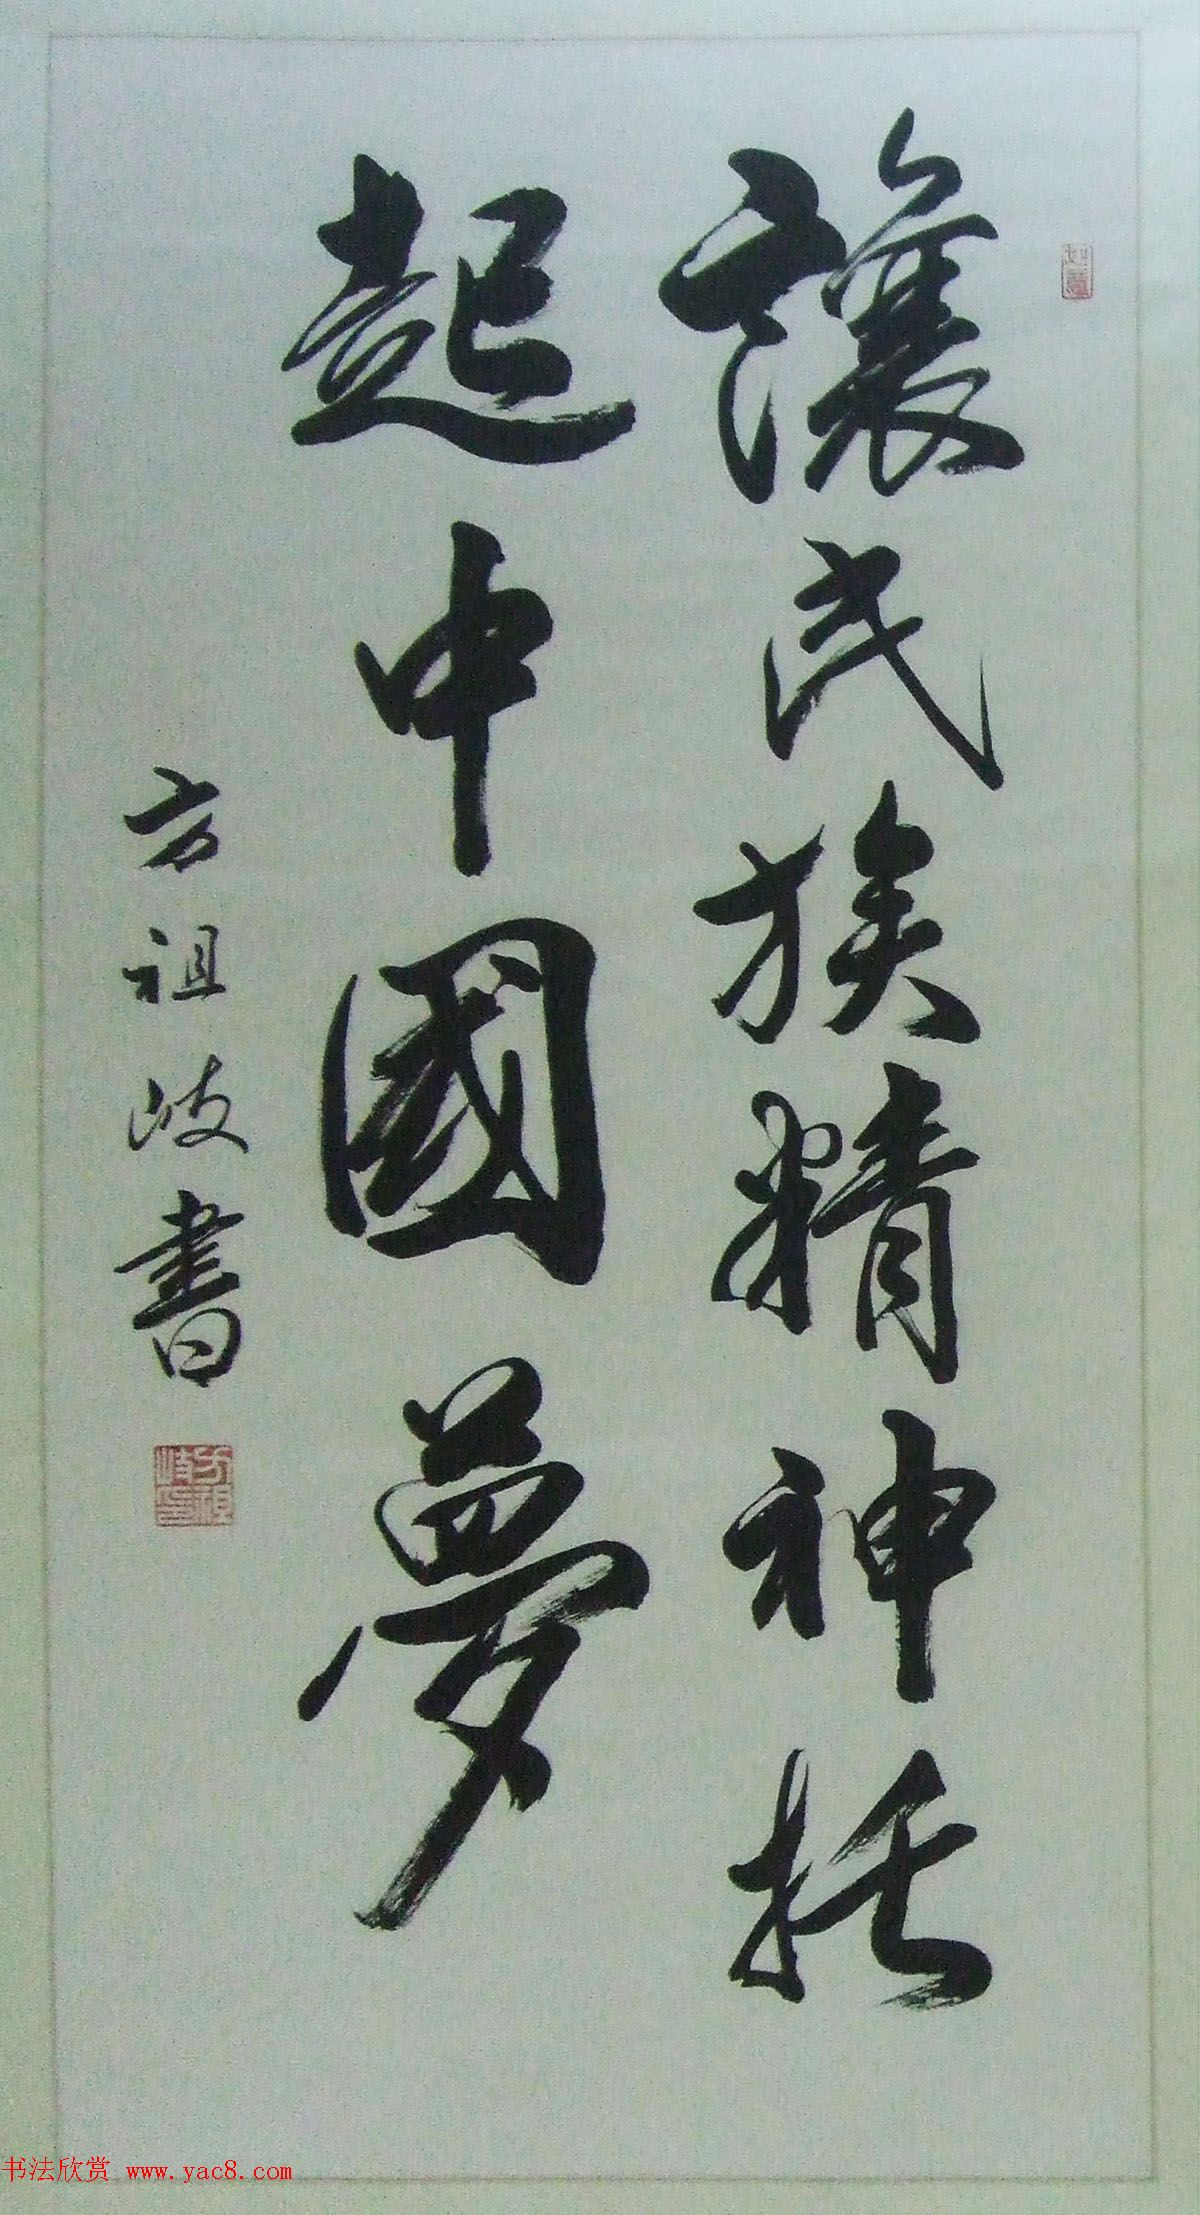 讓民族精神托
起中國夢
方祖岐書
方祖岐印
如意
书法欣赏 www.yac8.com